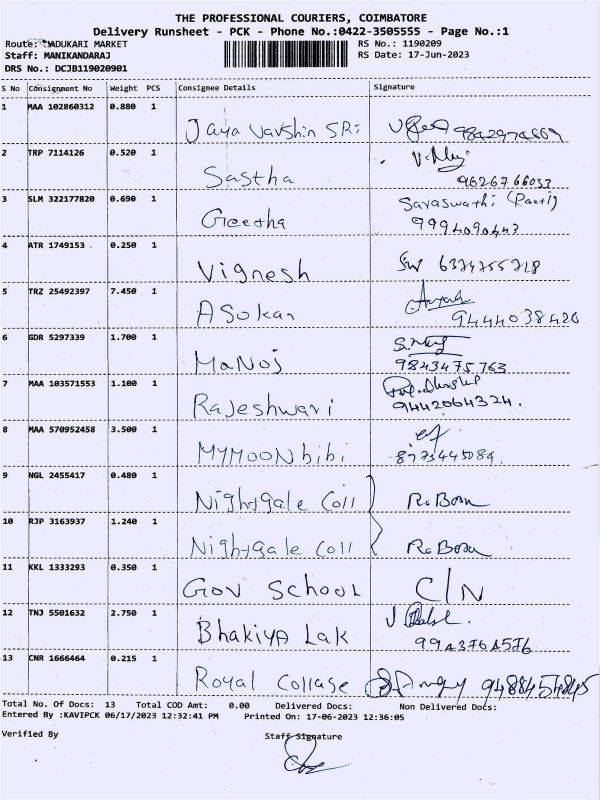 THE PROFESSIONAL COURIERS, COIMBATORE
Delivery Runsheet - PCK - Phone No.:0422-3505555 - Page No.:1
Route: MADUKARI MARKET RS No.: 1190209
Staff: MANIKANDARAJ RS Date: 17-Jun-2023
DRS No.: DCJB119020901
S No Consignment No Weight PCS Consignee Details Signature
1 MAA 102860312 0.880 1
Jaya Varshin SRi
2 TRP 7114126 0.520 1
Sastha 9626766033
3 SLM 322177820 0.690 1 Saraswathi
Greetha 9994090443
4 ATR 1749153 0.250 1
Vignesh 6374755718
5 TRZ 25492397 7.450 1
ASokan 9444038420
6 GDR 5297339 1.700 1
MaNoj 9843475763
7 MAA 103571553 1.100 1
Rajeshwari 9442064324.
8 MAA 570952458 3.500 1
MYMOON bibi 8973445084
9 NGL 2455417 0.480 1
Nightgale Coll
10 RJP 3163937 1.240 1
Nightgale Coll
11 KKL 1333293 0.350 1
Gov School C/N
12 TNJ 5501632 2.750 1
Bhakiya Lak
13 CNR 1666464 0.215 1
Royal Collage
Total No. Of Docs: 13 Total COD Amt: 0.00 Delivered Docs: Non Delivered Docs:
Entered By :KAVIPCK 06/17/2023 12:32:41 PM Printed On: 17-06-2023 12:36:05
Verified By Staff Signature